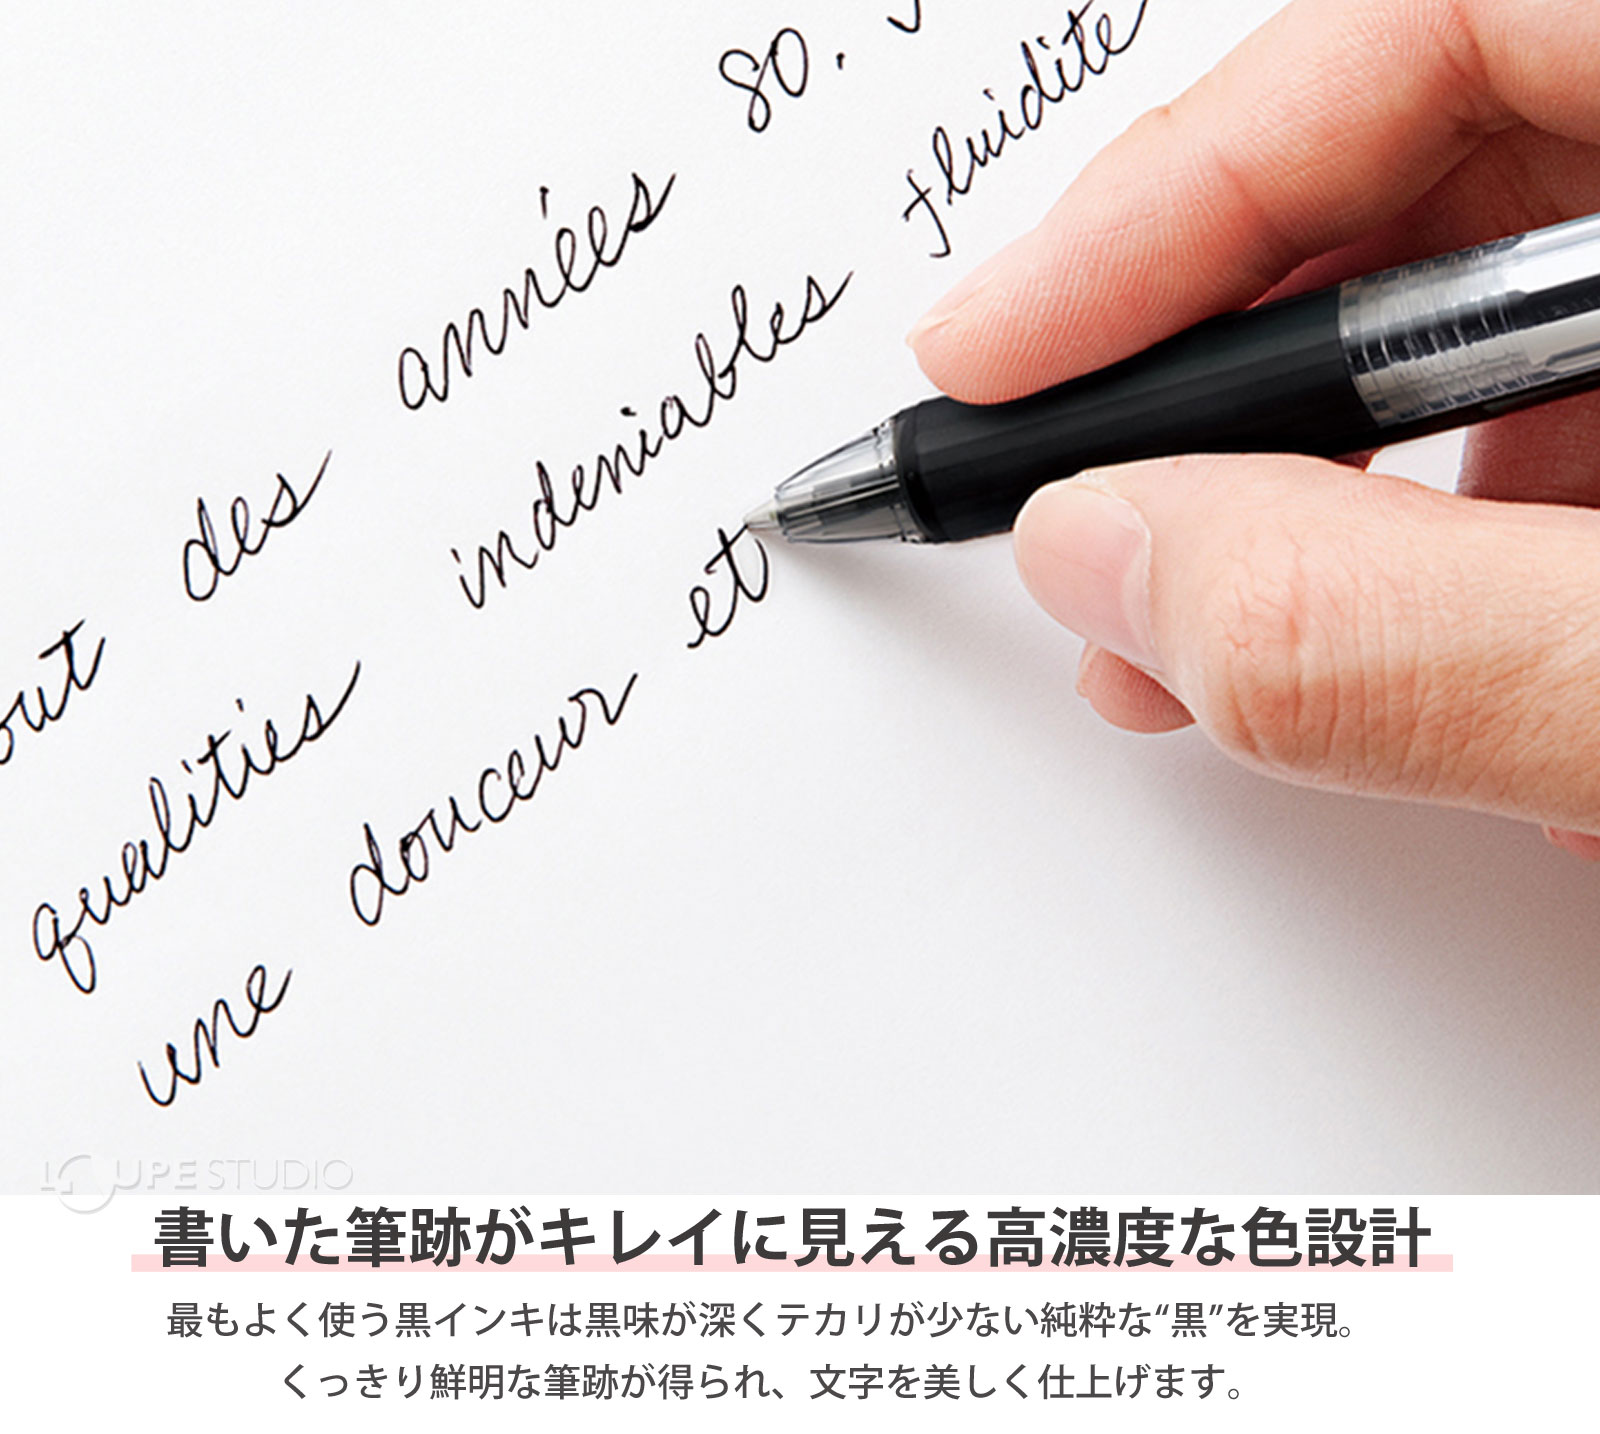 out des années 80.
qualities indeniables fluidite
une douceur et
LOUPE STUDIO
書いた筆跡がキレイに見える高濃度な色設計
最もよく使う黒インキは黒味が深くテカリが少ない純粋な“黒”を実現。
くっきり鮮明な筆跡が得られ、文字を美しく仕上げます。